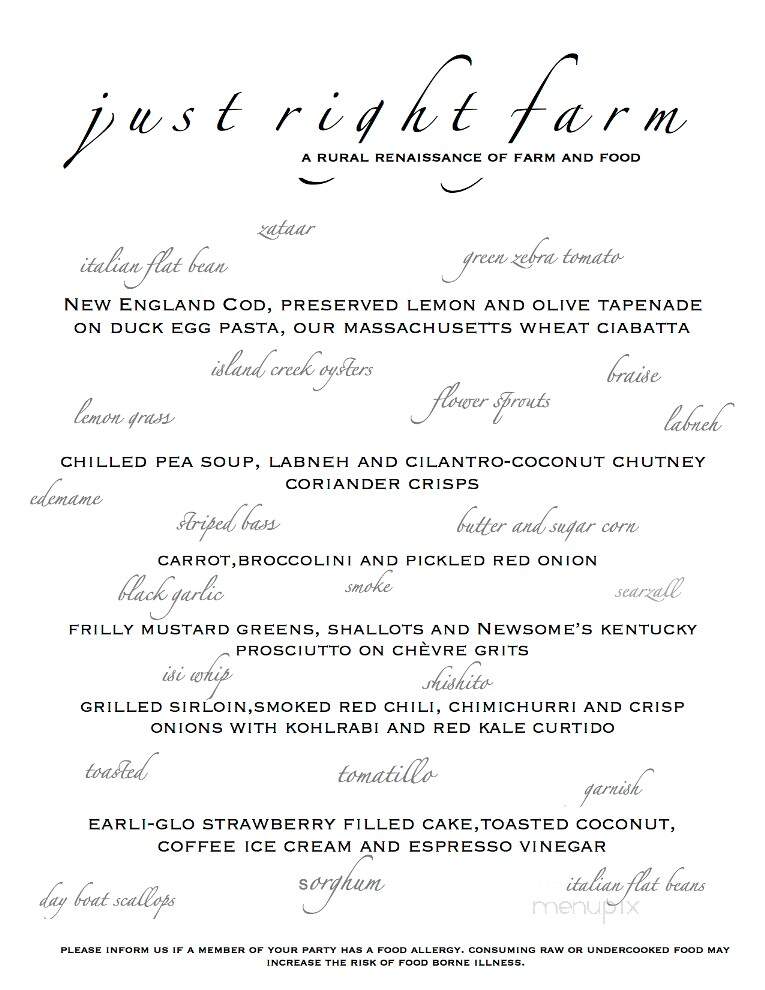 just right farm
A RURAL RENAISSANCE OF FARM AND FOOD
zataar
italian flat bean
green zebra tomato
NEW ENGLAND COD, PRESERVED LEMON AND OLIVE TAPENADE
ON DUCK EGG PASTA, OUR MASSACHUSETTS WHEAT CIABATTA
island creek oysters
braise
flower sprouts
lemon grass
labneh
CHILLED PEA SOUP, LABNEH AND CILANTRO-COCONUT CHUTNEY
CORIANDER CRISPS
edemame
striped bass
butter and sugar corn
CARROT,BROCCOLINI AND PICKLED RED ONION
black garlic
smoke
searzall
FRILLY MUSTARD GREENS, SHALLOTS AND NEWSOME'S KENTUCKY
PROSCIUTTO ON CHÈVRE GRITS
isi whip
shishito
GRILLED SIRLOIN,SMOKED RED CHILI, CHIMICHURRI AND CRISP
ONIONS WITH KOHLRABI AND RED KALE CURTIDO
toasted
tomatillo
garnish
EARLI-GLO STRAWBERRY FILLED CAKE,TOASTED COCONUT,
COFFEE ICE CREAM AND ESPRESSO VINEGAR
day boat scallops
sorghum
italian flat beans
menupix
PLEASE INFORM US IF A MEMBER OF YOUR PARTY HAS A FOOD ALLERGY. CONSUMING RAW OR UNDERCOOKED FOOD MAY
INCREASE THE RISK OF FOOD BORNE ILLNESS.